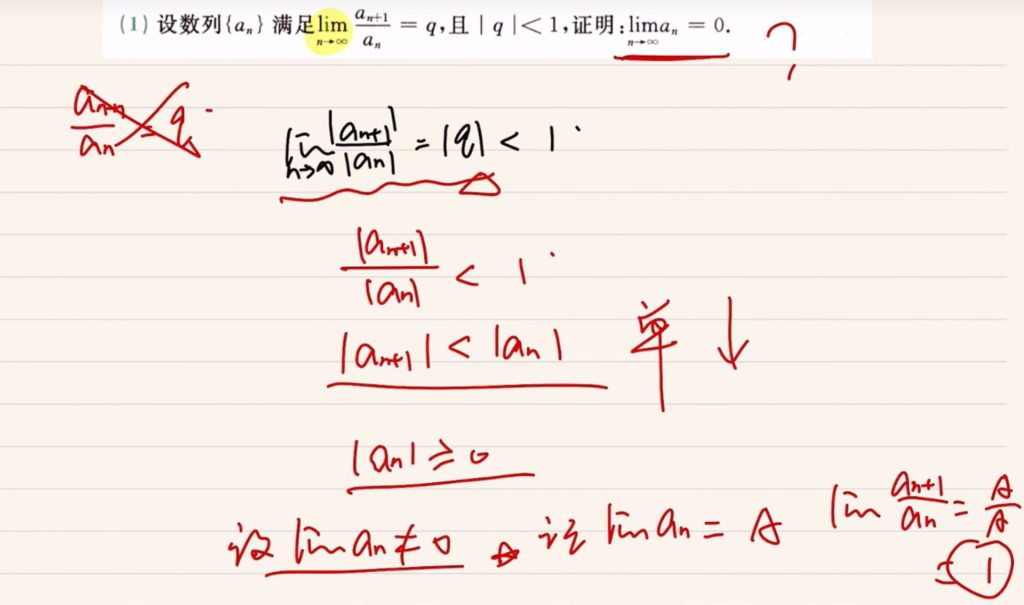 (1) 设数列{aₙ}满足lim n→∞ aₙ₊₁/aₙ = q,且|q|<1,证明:lim n→∞ aₙ = 0.
?
aₙ₊₁/aₙ = q
lim n→∞ |aₙ₊₁|/|aₙ| = |q| < 1
|aₙ₊₁|/|aₙ| < 1
|aₙ₊₁| < |aₙ| 单↓
|aₙ| ≥ 0
设 lim aₙ ≠ 0 记 lim aₙ = A lim aₙ₊₁/aₙ = A/A
= 1